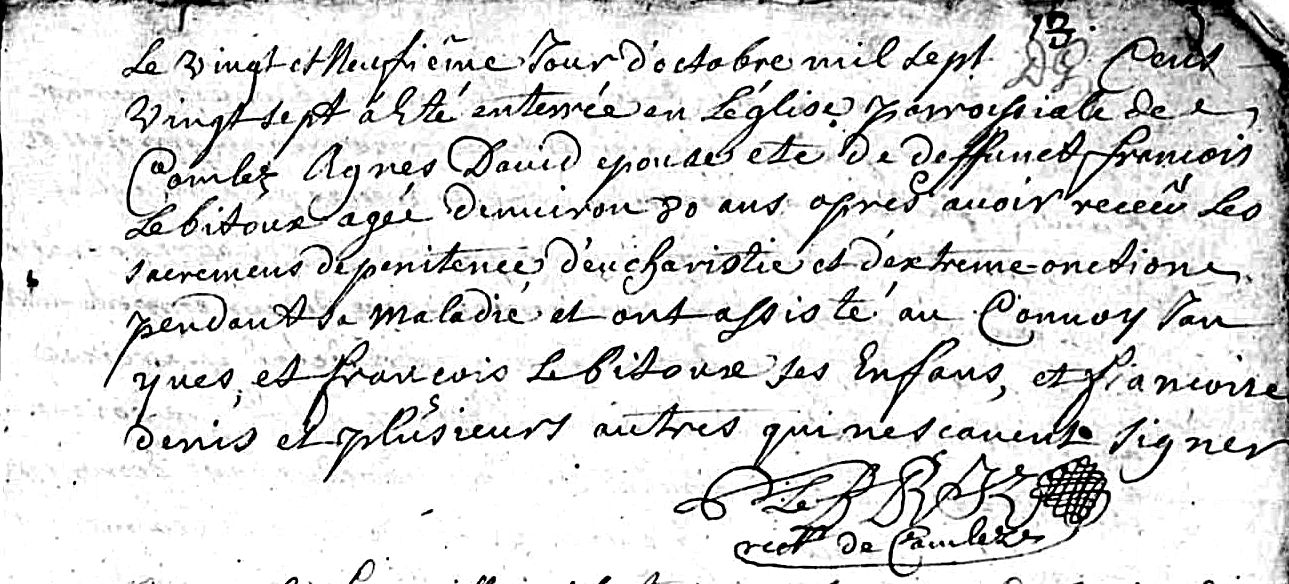 13.
Le vingt et Neufiême Jour d'octobre mil sept Cent
vingt sept á Eté enterrée en Léglise parroissiale de
Camlez Agnes David epouse ete de deffunct francois
Lebitoux ageé denviron 80 ans apres avoir receü Les
sacremens de penitence d'eucharistie et d'extreme onction
pendant sa maladié et ont assisté au Convoy Jan
yves, et francois Lebitoux ses Enfans, et francoise
denis et plusieurs autres qui nescavent signer
rect^r de Camlez